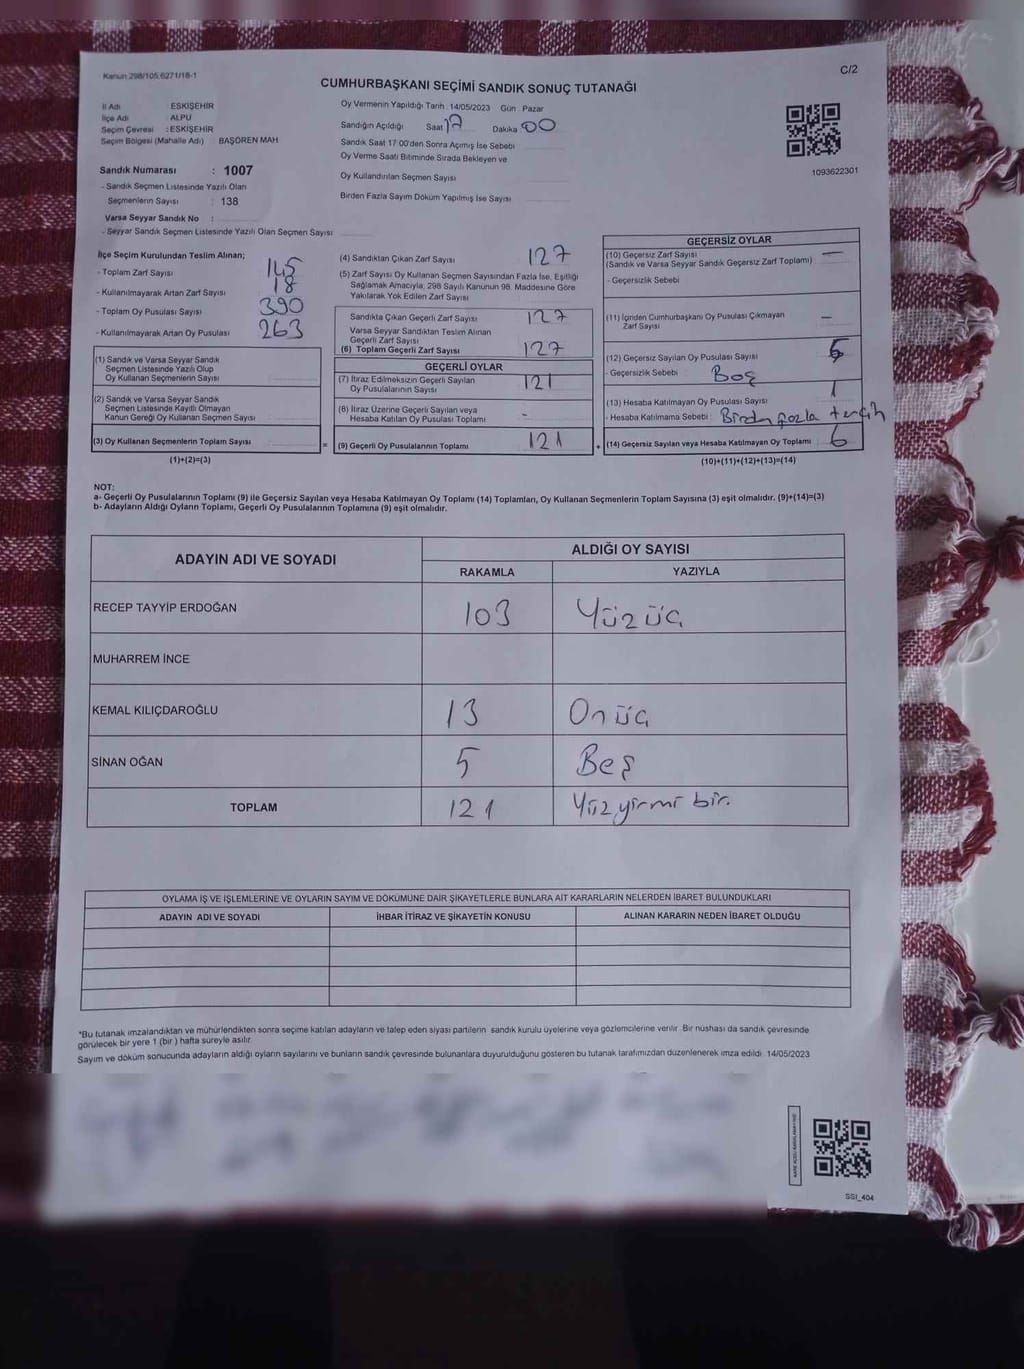 Kanun 298/105,6271/18-1
C/2
CUMHURBAŞKANI SEÇİMİ SANDIK SONUÇ TUTANAĞI
İl Adı ESKİŞEHİR
İlçe Adı ALPU
Seçim Çevresi : ESKİŞEHİR
Seçim Bölgesi (Mahalle Adı) BAŞÖREN MAH
Sandık Numarası : 1007
- Sandık Seçmen Listesinde Yazılı Olan
Seçmenlerin Sayısı : 138
Varsa Seyyar Sandık No :
- Seyyar Sandık Seçmen Listesinde Yazılı Olan Seçmen Sayısı
Oy Vermenin Yapıldığı Tarih : 14/05/2023 Gün : Pazar
Sandığın Açıldığı Saat 17 Dakika 00
Sandık Saat 17:00'den Sonra Açımış İse Sebebi
Oy Verme Saati Bitiminde Sırada Bekleyen ve
Oy Kullandırılan Seçmen Sayısı
Birden Fazla Sayım Döküm Yapılmış İse Sayısı
1093622301
İlçe Seçim Kurulundan Teslim Alınan;
- Toplam Zarf Sayısı 145
- Kullanılmayarak Artan Zarf Sayısı 18
- Toplam Oy Pusulası Sayısı 390
- Kullanılmayarak Artan Oy Pusulası 263
(1) Sandık ve Varsa Seyyar Sandık
Seçmen Listesinde Yazılı Olup
Oy Kullanan Seçmenlerin Sayısı
(2) Sandık ve Varsa Seyyar Sandık
Seçmen Listesinde Kayıtlı Olmayan
Kanun Gereği Oy Kullanan Seçmen Sayısı
(3) Oy Kullanan Seçmenlerin Toplam Sayısı =
(1)+(2)=(3)
(4) Sandıktan Çıkan Zarf Sayısı 127
(5) Zarf Sayısı Oy Kullanan Seçmen Sayısından Fazla İse, Eşitliği
Sağlamak Amacıyla, 298 Sayılı Kanunun 98. Maddesine Göre
Yakılarak Yok Edilen Zarf Sayısı
Sandıkta Çıkan Geçerli Zarf Sayısı 127
Varsa Seyyar Sandıktan Teslim Alınan
Geçerli Zarf Sayısı
(6) Toplam Geçerli Zarf Sayısı 127
GEÇERLİ OYLAR
(7) İtiraz Edilmeksizin Geçerli Sayılan
Oy Pusulalarının Sayısı 121
(8) İtiraz Üzerine Geçerli Sayılan veya
Hesaba Katılan Oy Pusulası Toplamı -
(9) Geçerli Oy Pusulalarının Toplamı 121 +
GEÇERSİZ OYLAR
(10) Geçersiz Zarf Sayısı —
(Sandık ve Varsa Seyyar Sandık Geçersiz Zarf Toplamı)
- Geçersizlik Sebebi
(11) İçinden Cumhurbaşkanı Oy Pusulası Çıkmayan
Zarf Sayısı —
(12) Geçersiz Sayılan Oy Pusulası Sayısı
- Geçersizlik Sebebi : Boş
(13) Hesaba Katılmayan Oy Pusulası Sayısı 1
- Hesaba Katılmama Sebebi : Birden fazla tercih
(14) Geçersiz Sayılan veya Hesaba Katılmayan Oy Toplamı 6
(10)+(11)+(12)+(13)=(14)
NOT:
a- Geçerli Oy Pusulalarının Toplamı (9) ile Geçersiz Sayılan veya Hesaba Katılmayan Oy Toplamı (14) Toplamları, Oy Kullanan Seçmenlerin Toplam Sayısına (3) eşit olmalıdır. (9)+(14)=(3)
b- Adayların Aldığı Oyların Toplamı, Geçerli Oy Pusulalarının Toplamına (9) eşit olmalıdır.
ADAYIN ADI VE SOYADI
ALDIĞI OY SAYISI
RAKAMLA YAZIYLA
RECEP TAYYİP ERDOĞAN 103 Yüzüç
MUHARREM İNCE
KEMAL KILIÇDAROĞLU 13 Onüç
SİNAN OĞAN 5 Beş
TOPLAM 121 Yüzyirmi bir.
OYLAMA İŞ VE İŞLEMLERİNE VE OYLARIN SAYIM VE DÖKÜMÜNE DAİR ŞİKAYETLERLE BUNLARA AİT KARARLARIN NELERDEN İBARET BULUNDUKLARI
ADAYIN ADI VE SOYADI İHBAR İTİRAZ VE ŞİKAYETİN KONUSU ALINAN KARARIN NEDEN İBARET OLDUĞU
*Bu tutanak imzalandıktan ve mühürlendikten sonra seçime katılan adayların ve talep eden siyasi partilerin sandık kurulu üyelerine veya gözlemcilerine verilir. Bir nüshası da sandık çevresinde
görülecek bir yere 1 (bir) hafta süreyle asılır.
Sayım ve döküm sonucunda adayların aldığı oyların sayılarını ve bunların sandık çevresinde bulunanlara duyurulduğunu gösteren bu tutanak tarafımızdan düzenlenerek imza edildi. 14/05/2023
SSI_404